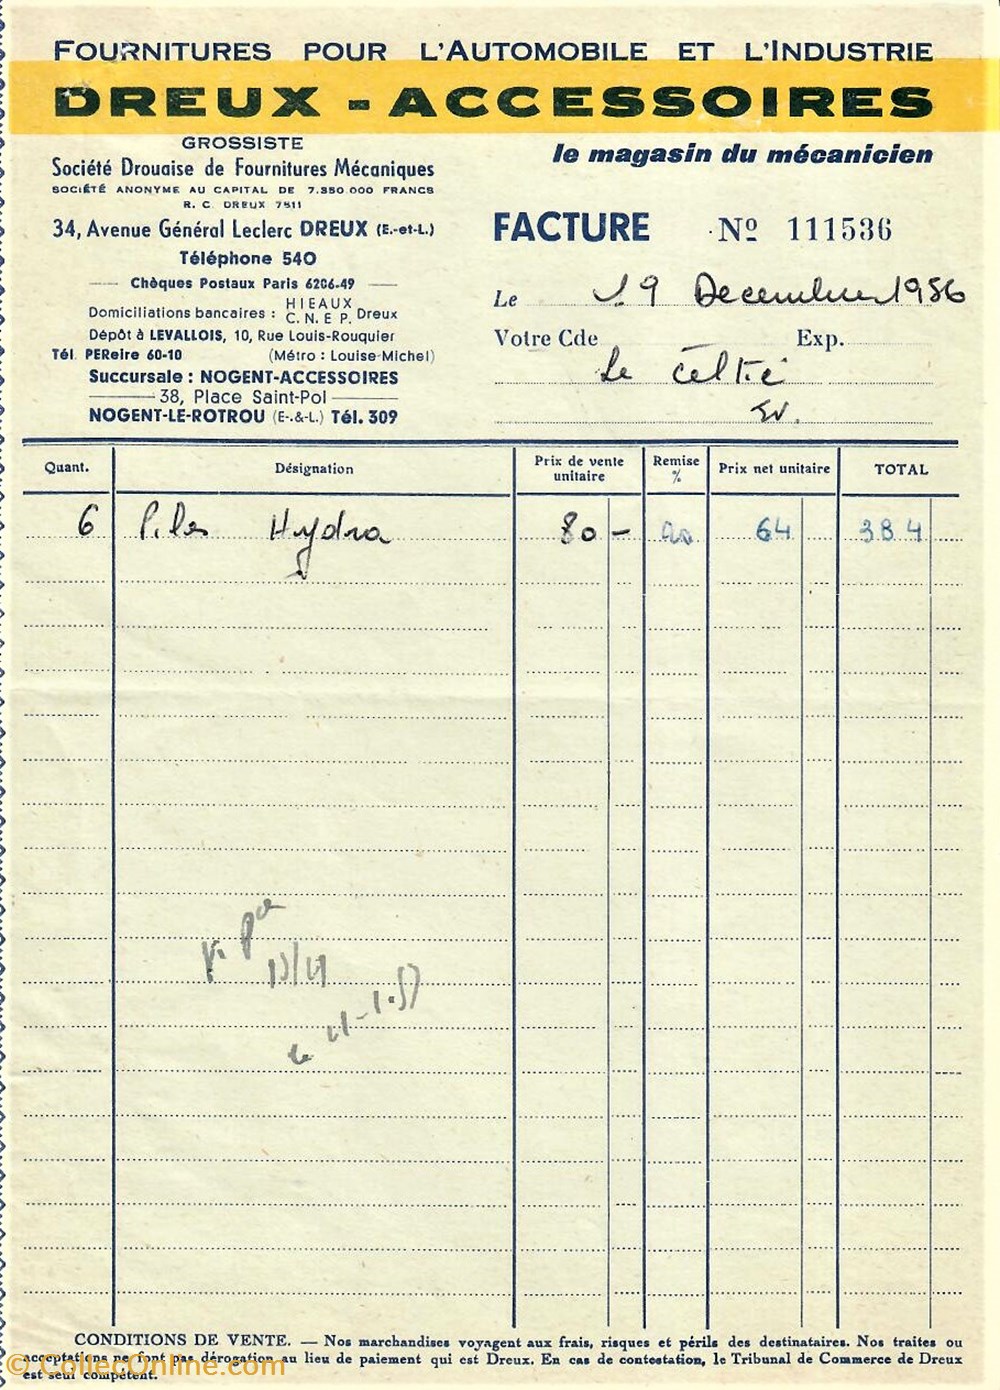 FOURNITURES POUR L'AUTOMOBILE ET L'INDUSTRIE
DREUX - ACCESSOIRES
GROSSISTE
le magasin du mécanicien
Société Drouaise de Fournitures Mécaniques
SOCIÉTÉ ANONYME AU CAPITAL DE 7.350.000 FRANCS
R. C. DREUX 7511
34, Avenue Général Leclerc DREUX (E.-et-L.)
Téléphone 540
Chèques Postaux Paris 6206-49
Domiciliations bancaires : HIEAUX C. N. E P. Dreux
Dépôt à LEVALLOIS, 10, Rue Louis-Rouquier
Tél. PEReire 60-10 (Métro : Louise-Michel)
Succursale : NOGENT-ACCESSOIRES
38, Place Saint-Pol
NOGENT-LE-ROTROU (E.-&-L.) Tél. 309
FACTURE Nº 111536
Le 19 Decembre 1956
Votre Cde Exp.
Le Celtic
Quant. Désignation Prix de vente unitaire Remise % Prix net unitaire TOTAL
6 Piles Hydra 80 - 20 64 384
CONDITIONS DE VENTE. — Nos marchandises voyagent aux frais, risques et périls des destinataires. Nos traites ou
acceptations ne font pas dérogation au lieu de paiement qui est Dreux. En cas de contestation, le Tribunal de Commerce de Dreux
est seul compétent.
© CollecOnline.com